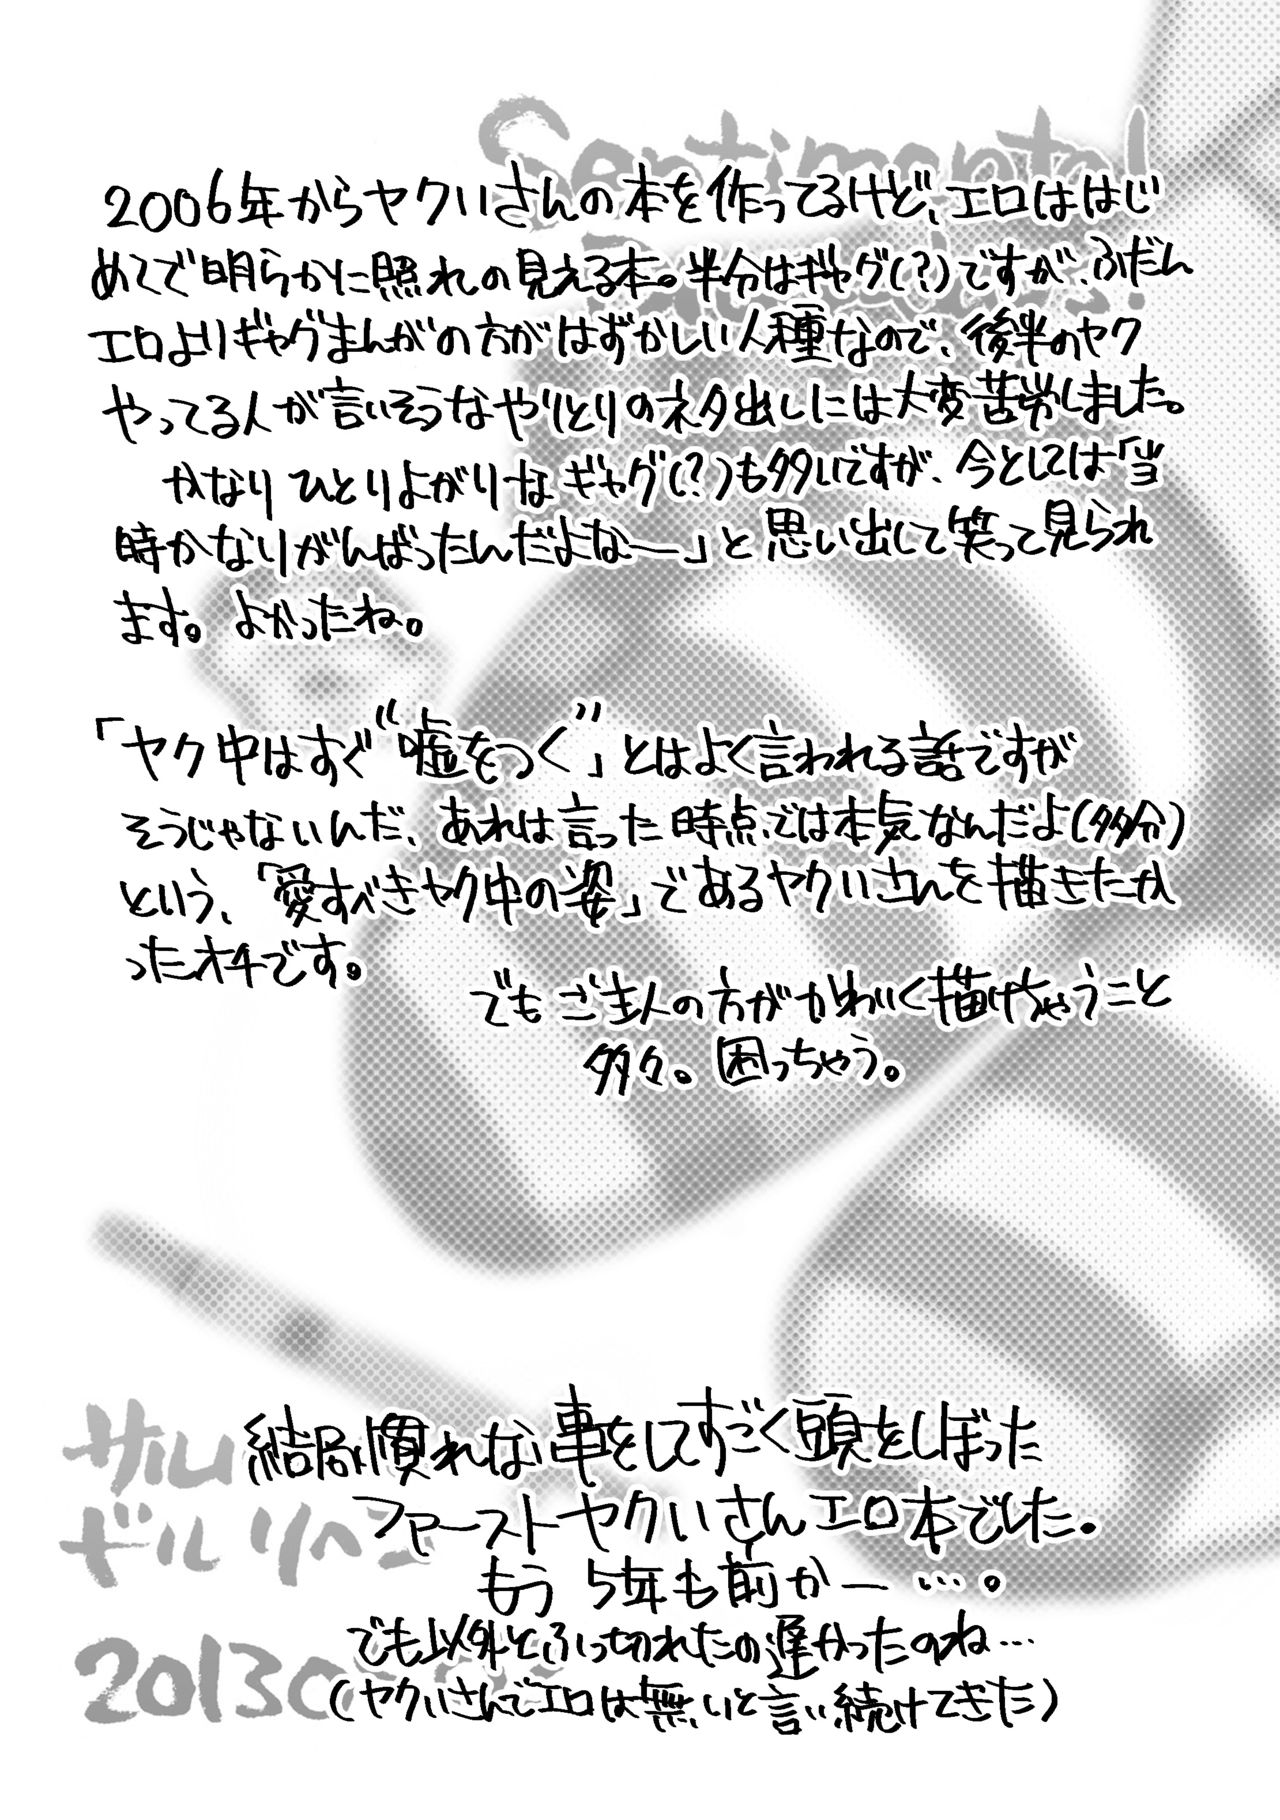 Sentimental
2006年からヤクいさんの本を作ってるけど、エロははじ
めてで明らかに照れの見える本。半分はギャグ(?)ですが、ふだん
エロよりギャグまんがの方がはずかしい人種なので、後半のヤク
やってる人が言いそうなやりとりのネタ出しには大変苦労しました。
かなりひとりよがりなギャグ(?)も多いですが、今としては「当
時かなりがんばったんだよなー」と思い出して笑って見られ
ます。よかったね。
「ヤク中はすぐ“嘘をつく”」とはよく言われる話ですが
そうじゃないんだ、あれは言った時点では本気なんだよ(多分)
という、「愛すべきヤク中の姿」であるヤクいさんを描きたか
ったオチです。
でもご主人の方がかわいく描けちゃうこと
多々。困っちゃう。
結局慣れない事をしてすごく頭をしぼった
ファーストヤクいさんエロ本でした。
もう5年も前かー…。
でも以外とふっ切れたの遅かったのね…
(ヤクいさんでエロは無いと言い続けてきた)
サルム
ドルリヘン
2013